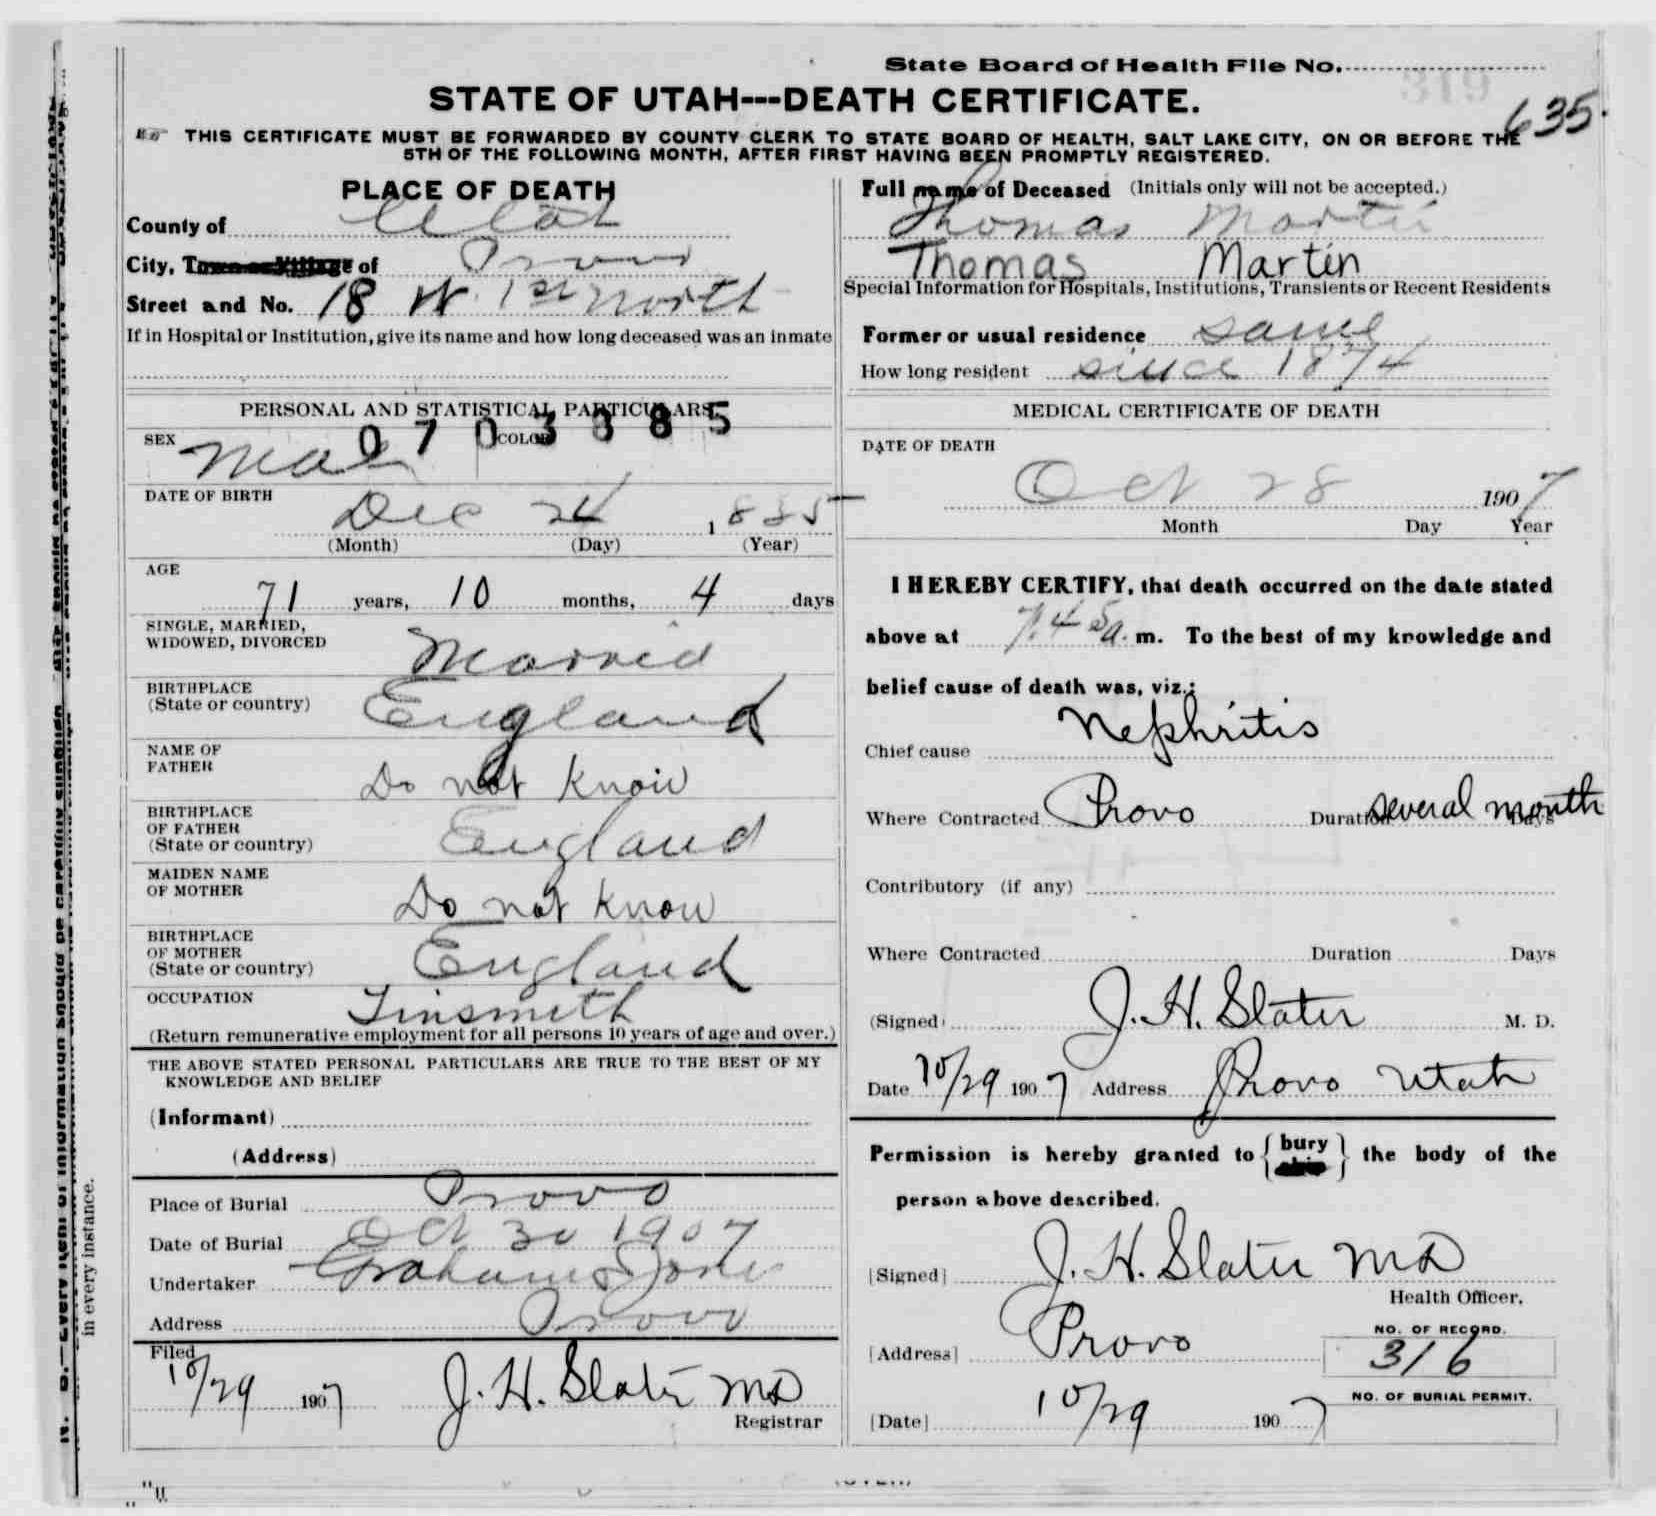 State Board of Health File No.
319
635.
STATE OF UTAH---DEATH CERTIFICATE.
THIS CERTIFICATE MUST BE FORWARDED BY COUNTY CLERK TO STATE BOARD OF HEALTH, SALT LAKE CITY, ON OR BEFORE THE
5TH OF THE FOLLOWING MONTH, AFTER FIRST HAVING BEEN PROMPTLY REGISTERED.
PLACE OF DEATH
County of Utah
City, Town or Village of Provo
Street and No. 18 W. 1st North
If in Hospital or Institution, give its name and how long deceased was an inmate
PERSONAL AND STATISTICAL PARTICULARS
0703385
SEX Male COLOR
DATE OF BIRTH
Dec 24 1835
(Month) (Day) (Year)
AGE
71 years, 10 months, 4 days
SINGLE, MARRIED,
WIDOWED, DIVORCED Married
BIRTHPLACE
(State or country) England
NAME OF
FATHER Do not know
BIRTHPLACE
OF FATHER
(State or country) England
MAIDEN NAME
OF MOTHER Do not know
BIRTHPLACE
OF MOTHER
(State or country) England
OCCUPATION Tinsmith
(Return remunerative employment for all persons 10 years of age and over.)
THE ABOVE STATED PERSONAL PARTICULARS ARE TRUE TO THE BEST OF MY
KNOWLEDGE AND BELIEF
(Informant)
(Address)
Place of Burial Provo
Date of Burial Oct 30 1907
Undertaker Graham & Jones
Address Provo
Filed
10/29 1907 J. H. Slater MD
Registrar
Full name of Deceased (Initials only will not be accepted.)
Thomas Martin
Thomas Martin
Special Information for Hospitals, Institutions, Transients or Recent Residents
Former or usual residence same
How long resident since 1874
MEDICAL CERTIFICATE OF DEATH
DATE OF DEATH
Oct 28 1907
Month Day Year
I HEREBY CERTIFY, that death occurred on the date stated
above at 7.45 a. m. To the best of my knowledge and
belief cause of death was, viz.:
Chief cause Nephritis
Where Contracted Provo Duration several month Days
Contributory (if any)
Where Contracted Duration Days
(Signed) J. H. Slater M. D.
Date 10/29 1907 Address Provo Utah
Permission is hereby granted to { bury ship } the body of the
person above described.
[Signed] J. H. Slater MD
Health Officer.
[Address] Provo
NO. OF RECORD.
316
NO. OF BURIAL PERMIT.
[Date] 10/29 1907
in every instance.
(OVER)